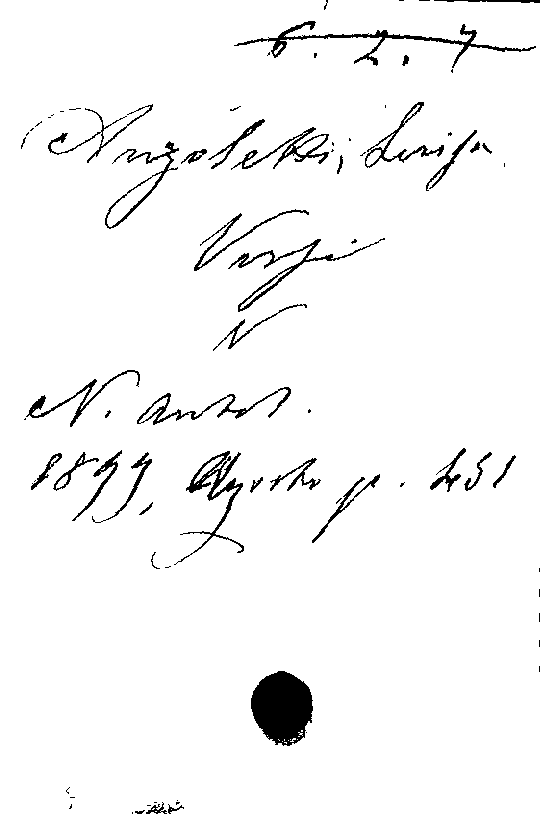 6. 2. 7
Anzoletti, Luisa
Versi
V
N. Antol.
1899, Agosto p. 451